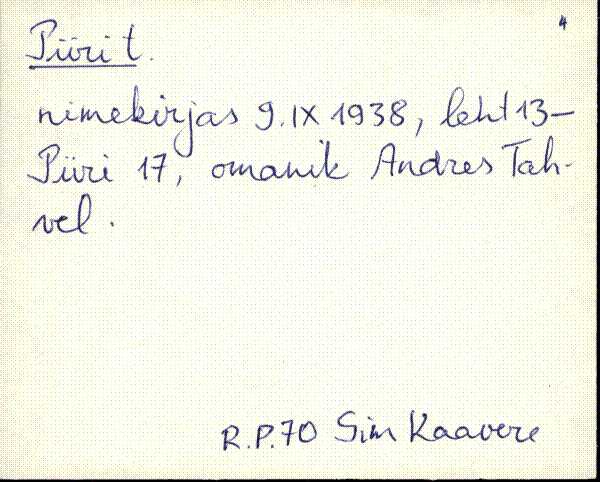 4
Piiri t.
nimekirjas 9.IX 1938, leht 13–
Piiri 17, omanik Andres Tah-
vel.
R.P.70 Sim Kaavere